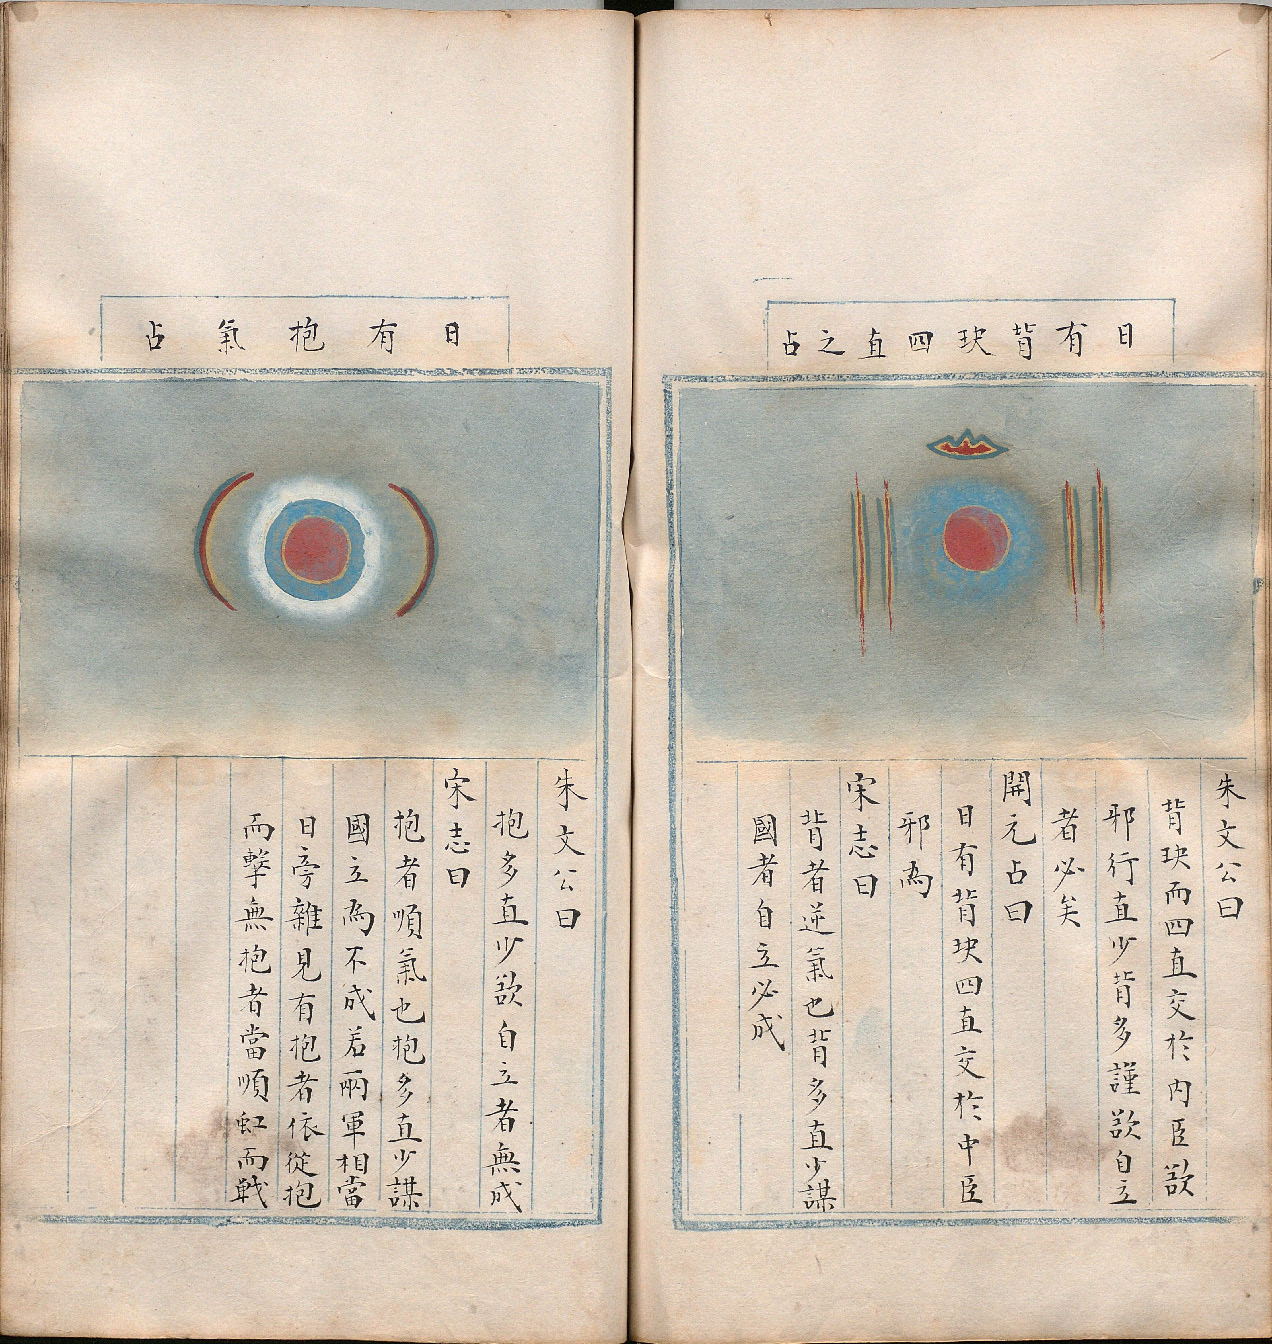 日有背玦四直之占
朱文公曰
背玦而四直交於內臣欲
邪行直少背多謹欲自立
者必矣
開元占曰
日有背玦四直交於中臣
邪為
宋志曰
背者逆氣也背多直少謀
國者自立必成
日有抱氣占
朱文公曰
抱多直少欲自立者無成
宋志曰
抱者順氣也抱多直少謀
國立為不成若兩軍相當
日旁雜見有抱者依從抱
而擊無抱者當順虹而戰